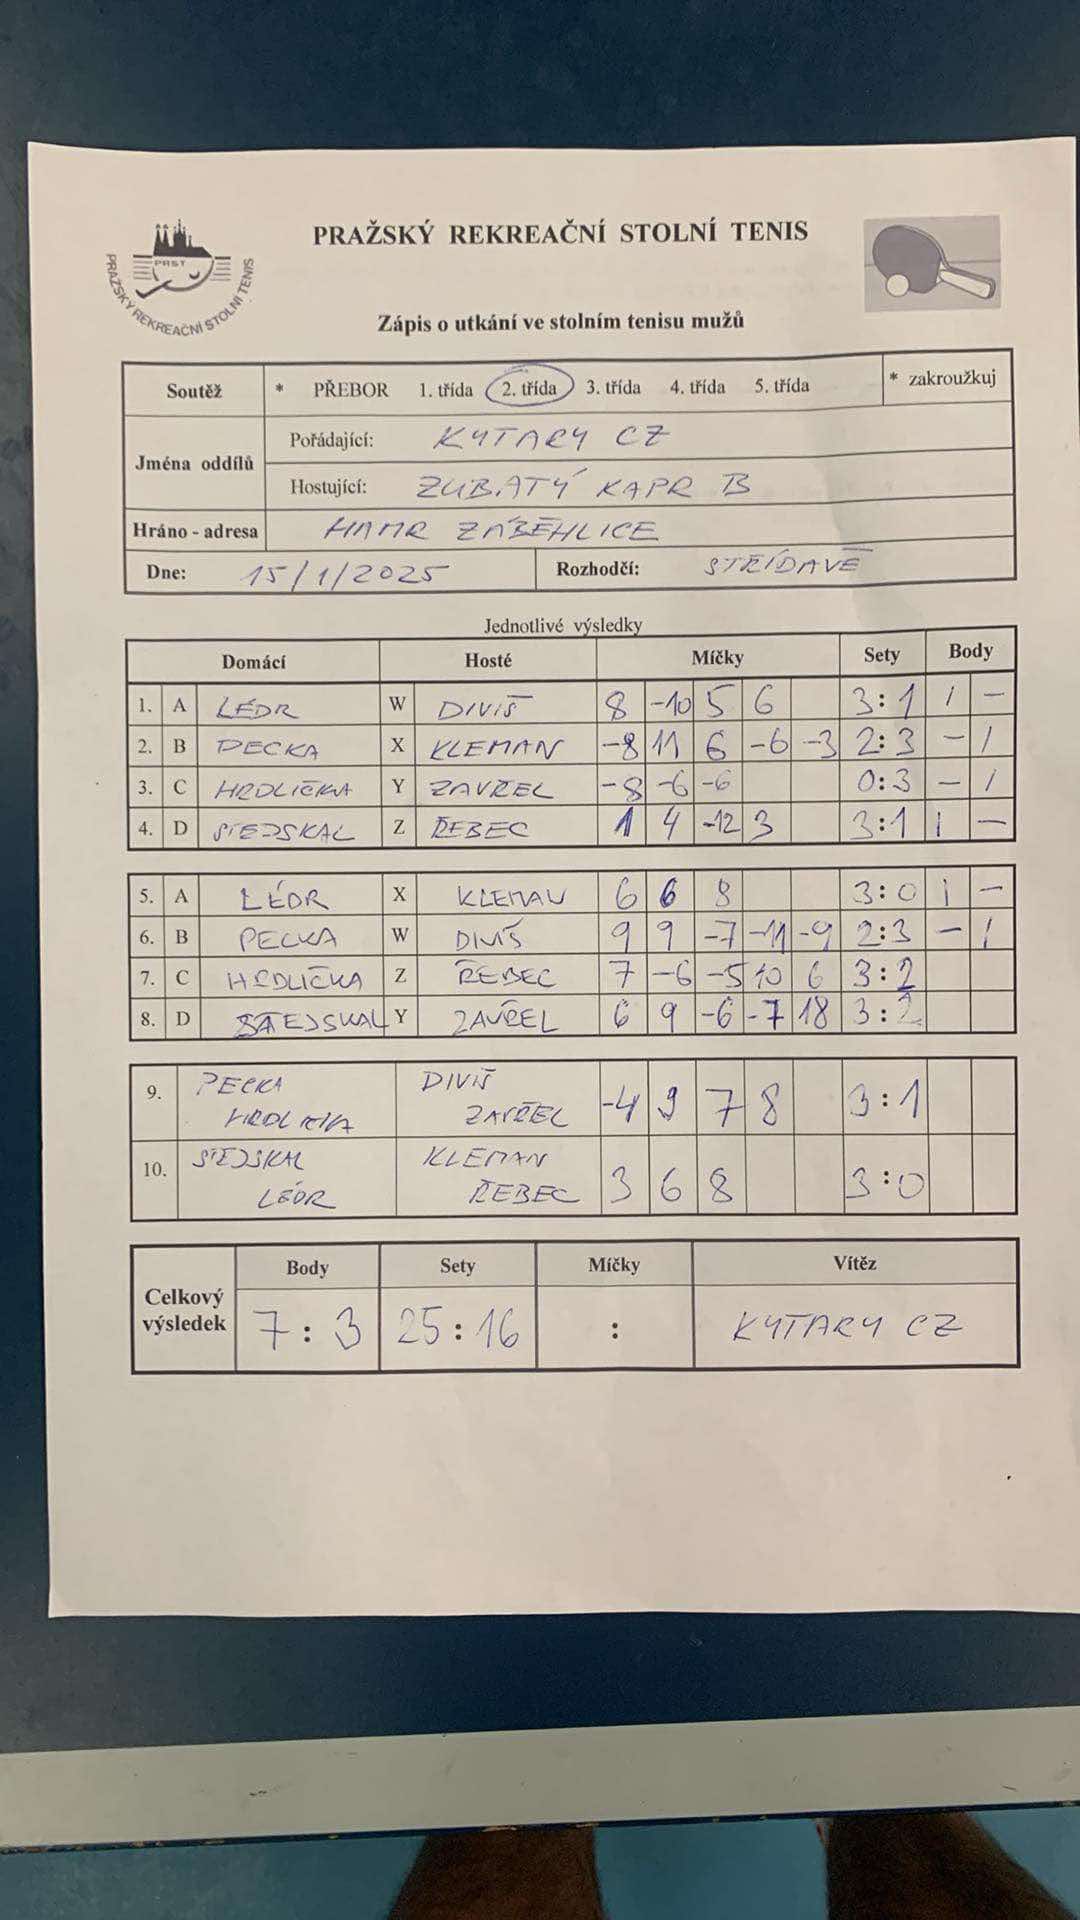 PRAŽSKÝ REKREAČNÍ STOLNÍ TENIS
PRST
PRAŽSKÝ REKREAČNÍ STOLNÍ TENIS
Zápis o utkání ve stolním tenisu mužů
Soutěž * PŘEBOR 1. třída 2. třída 3. třída 4. třída 5. třída * zakroužkuj
Jména oddílů
Pořádající: KYTARY CZ
Hostující: ZUBATÝ KAPR B
Hráno - adresa HAMR ZÁBĚHLICE
Dne: 15/1/2025 Rozhodčí: STŘÍDAVĚ
Jednotlivé výsledky
Domácí Hosté Míčky Sety Body
1. A LÉDR W DIVIŠ 8 -10 5 6 3:1 1 -
2. B PECKA X KLEMAN -8 11 6 -6 -3 2:3 - 1
3. C HRDLIČKA Y ZAVŘEL -8 -6 -6 0:3 - 1
4. D STEJSKAL Z ŘEBEC 1 4 -12 3 3:1 1 -
5. A LÉDR X KLEMAN 6 6 8 3:0 1 -
6. B PECKA W DIVIŠ 9 9 -7 -11 -9 2:3 - 1
7. C HRDLIČKA Z ŘEBEC 7 -6 -5 10 6 3:2
8. D STEJSKAL Y ZAVŘEL 6 9 -6 -7 18 3:2
9. PECKA DIVIŠ -4 9 7 8 3:1
HRDLIČKA ZAVŘEL
10. STEJSKAL KLEMAN 3 6 8 3:0
LÉDR ŘEBEC
Celkový výsledek
Body Sety Míčky Vítěz
7:3 25:16 : KYTARY CZ